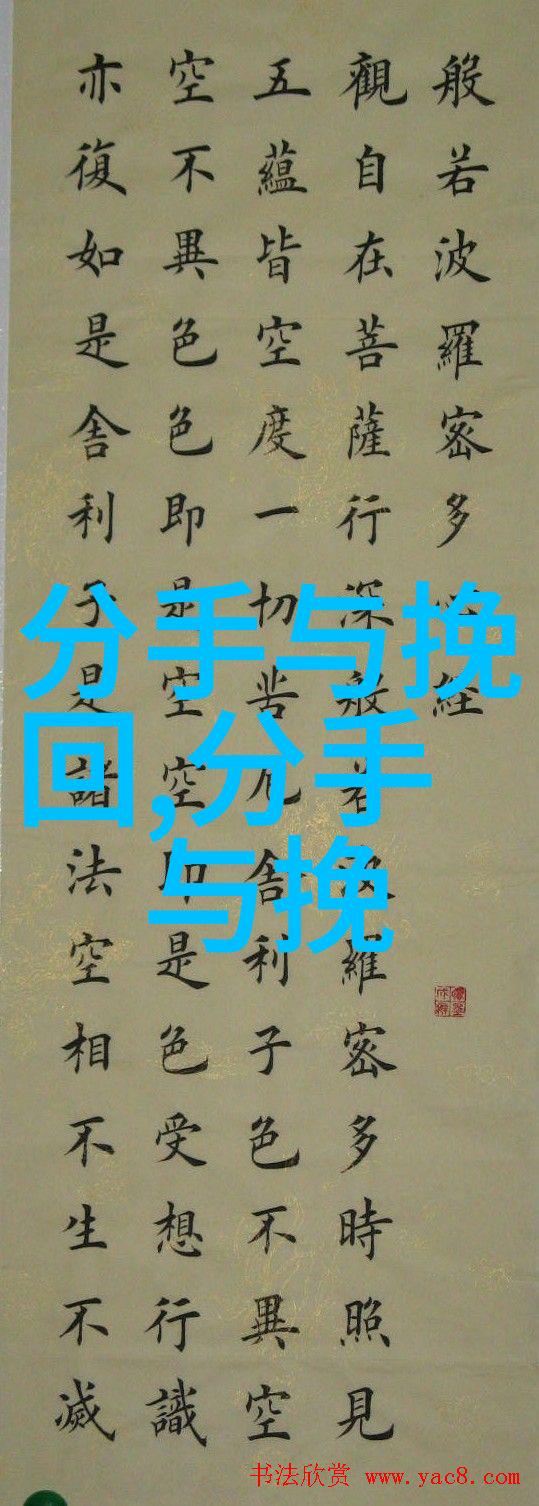 般若波羅密多心經
觀自在菩薩行深般若波羅密多時照見
五蘊皆空度一切苦厄舍利子色不異空
空不異色色即是空空即是色受想行識
亦復如是舍利子是諸法空相不生不滅
分手与挽
回,分手
与挽
书法欣赏 www.yac8.com